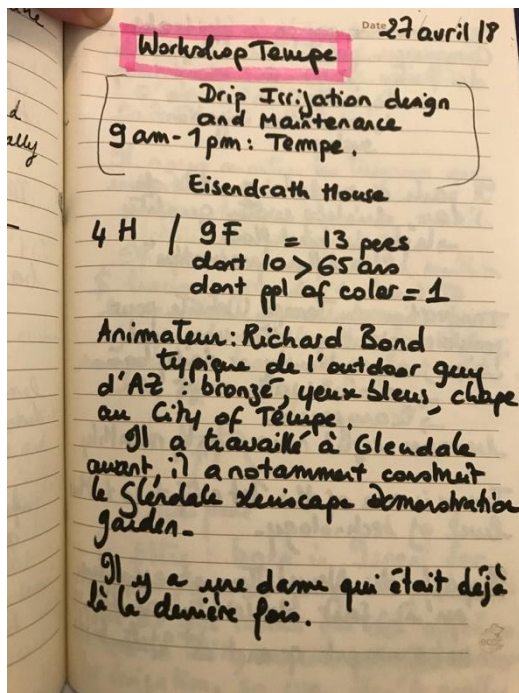 Date 27 avril 18
Workshop Tempe
Drip Irrigation design
and Maintenance
9am-1pm: Tempe.
Eisendrath House
4 H / 9F = 13 pers
dont 10 > 65 ans
dont ppl of color = 1
Animateur: Richard Bond
typique de l'outdoor guy
d'AZ : bronzé, yeux bleus, chape
au City of Tempe.
Il a travaillé à Glendale
avant, il a notamment construit
le Glendale Xeriscape Demonstration
garden.
Il y a une dame qui était déjà
là la dernière fois.
ally
d